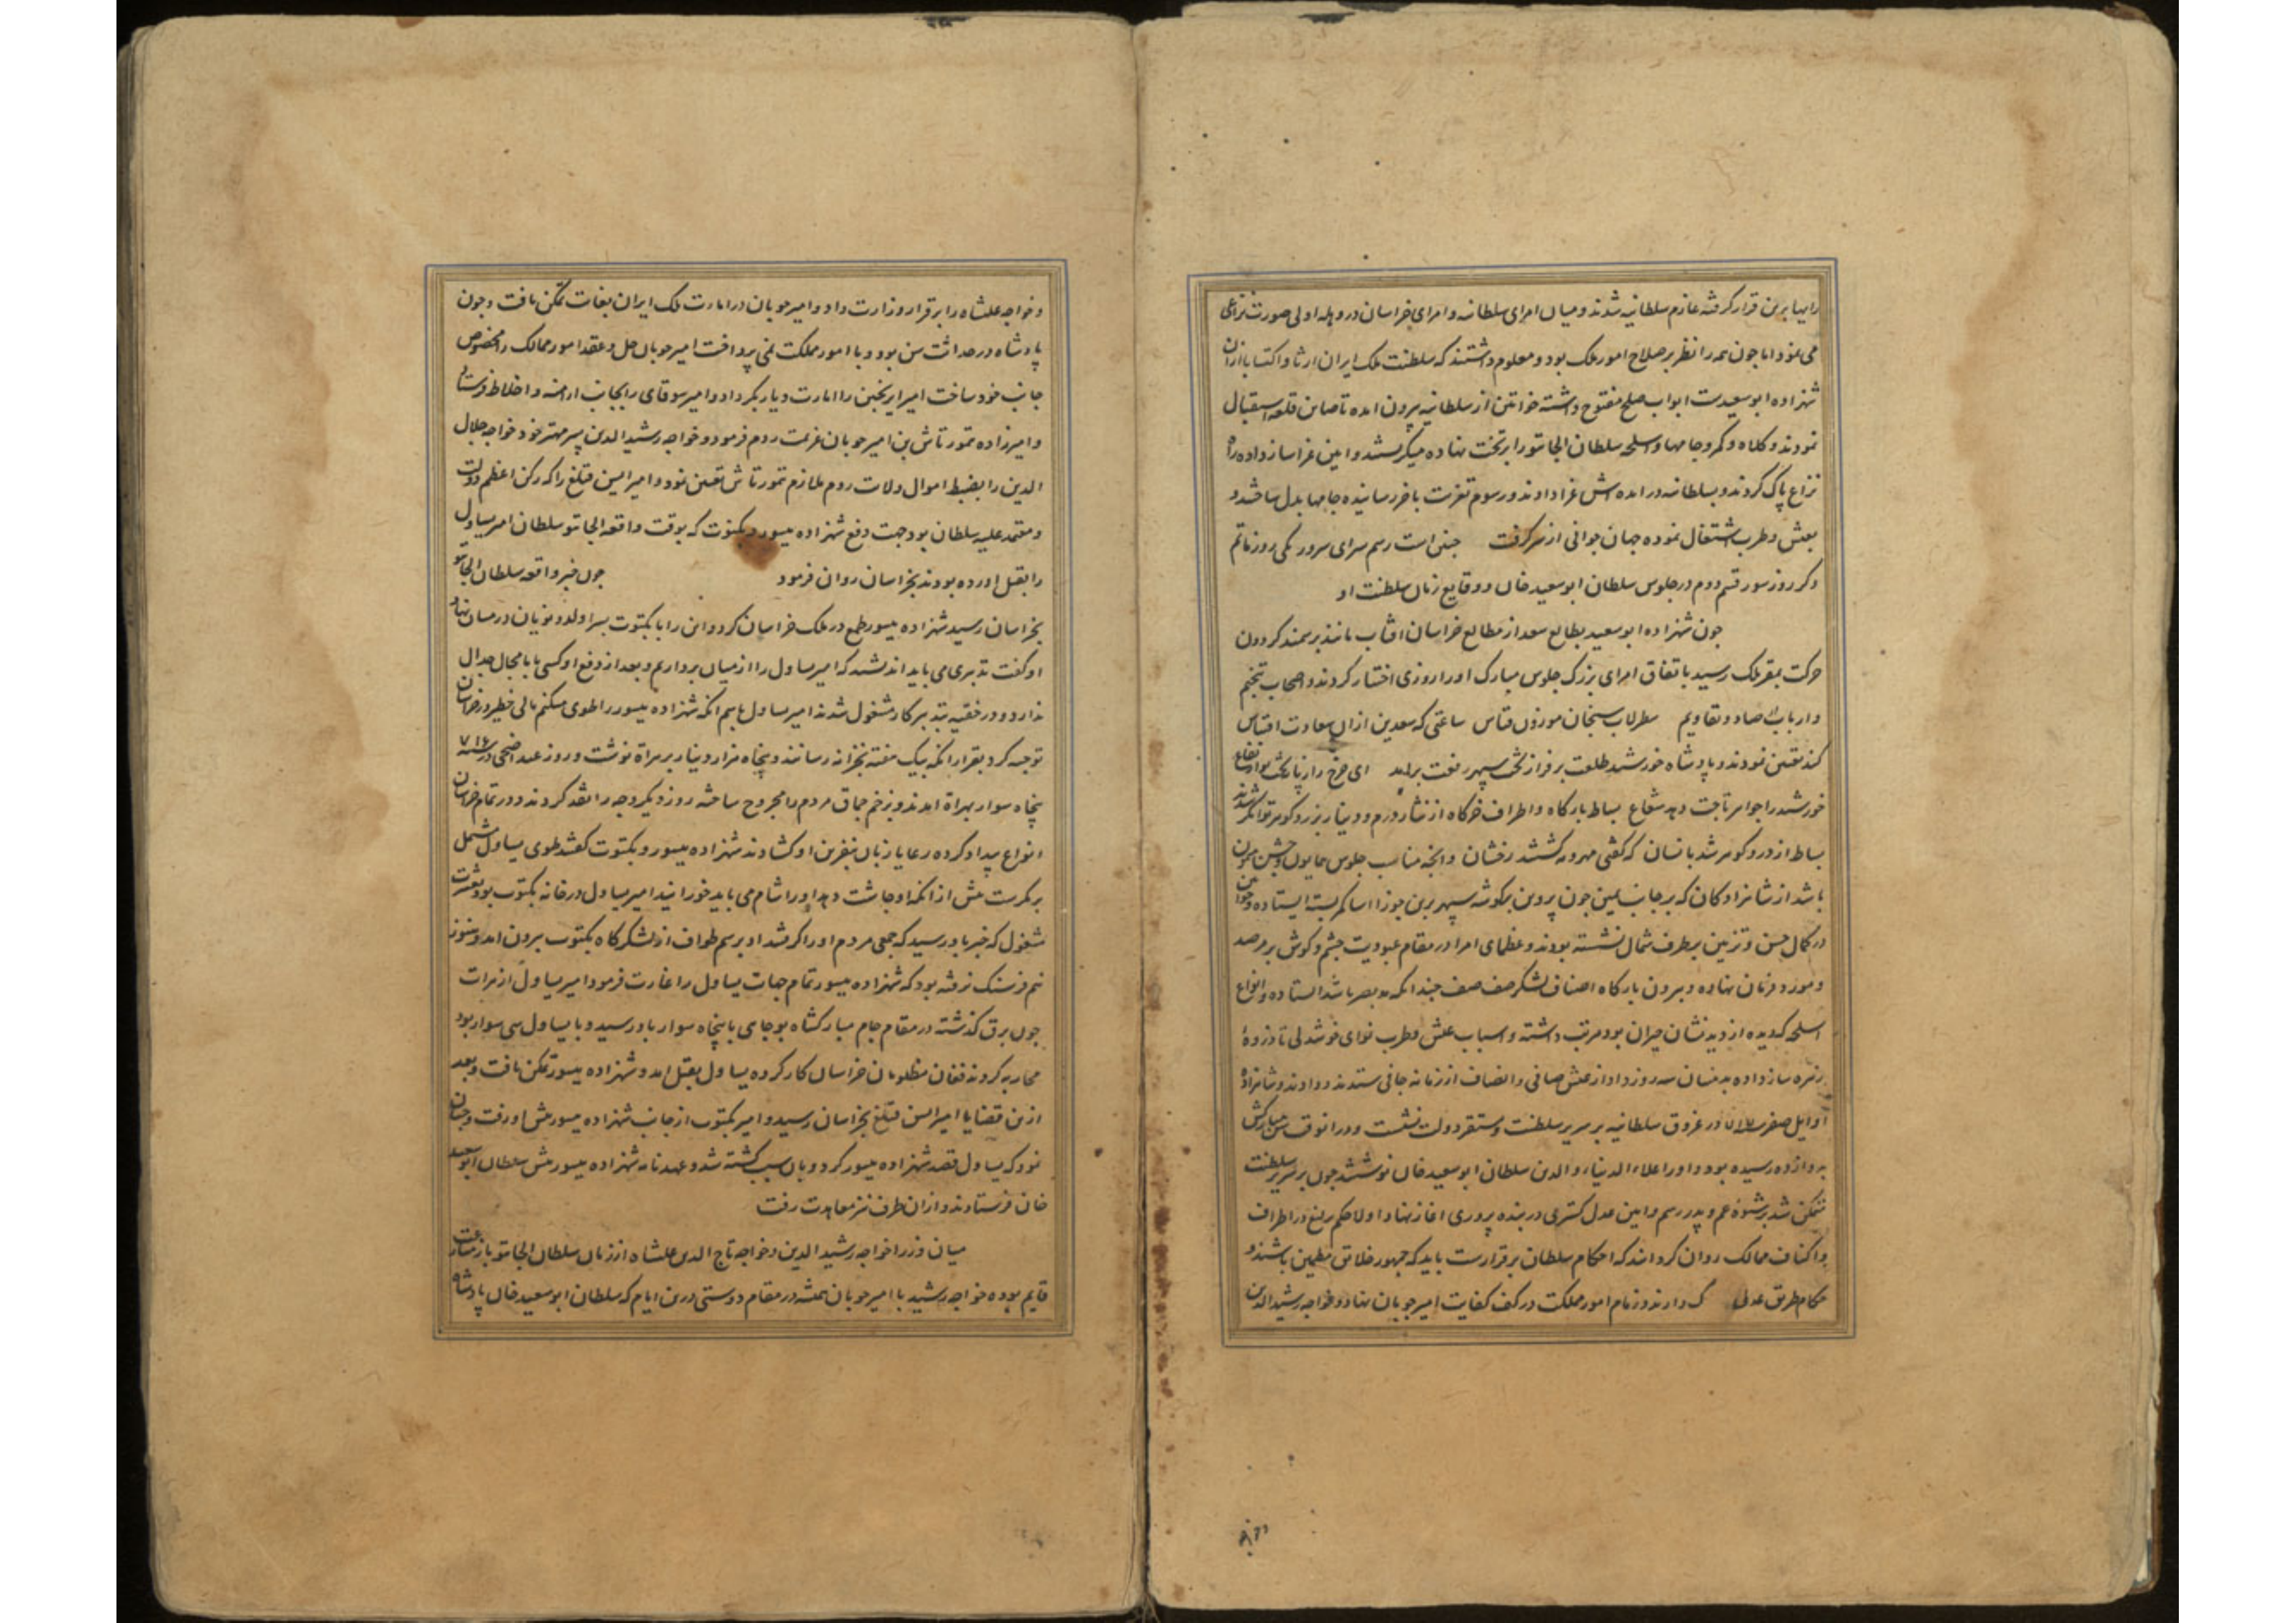 رایها برین قرار گرفته عازم سلطانیه شدند و میان امرای سلطانیه و امرای خراسان در وهله اولی صورت نزاعی
می نمود اما چون همه را نظر بر صلاح امور ملک بود و معلوم داشتند که سلطنت ملک ایران ارثا و اکتسابا ازان
شهزاده ابوسعیدست ابواب صلح مفتوح داشته خواتین از سلطانیه بیرون امده تا صاین قلعه استقبال
نمودند و کلاه و کمر و جامها و اسلحه سلطان الجایتو را بر تخت نهاده میگریستند و ایین عزا ساز داده راه
نزاع پاک کردند و بسلطانیه در امده اش عزا دادند و رسوم تعزیت باخر رسانیده جامها بدل ساختند و
بعیش و طرب اشتغال نموده جهان جوانی از سر گرفت چنین است رسم سرای سرور یکی روز ماتم
دگر روز سور قسم دوم در جلوس سلطان ابوسعید خان و وقایع زمان سلطنت او
چون شهزاده ابوسعید بطالع سعد از مطالع خراسان افتاب مانند بر سمند گردون
حرکت بمقر ملک رسید باتفاق امرای بزرگ جلوس مبارک او را روزی اختیار کردند و اصحاب تنجیم
و ارباب ارصاد و تقاویم سطرلاب سنجان موزون قیاس ساعتی که سعدین ازان سعادت اقتباس
کند تعیین نمودند و پادشاه خورشید طلعت بر فراز تخت سپهر رفعت برامد ای چرخ را ز پایه تخت تو ارتفاع
خورشید را جواهر تاجت دهد شعاع بساط بارگاه و اطراف خرگاه از نثار درم و دینار بزر و گوهر توانگر شدند
بساط از در و گوهر شد بانسان که گفتی مهر و مه گشتند رخشان و انچه مناسب جلوس همایون و جشن همیون
باشد از شاهزادگان که بر جانب یمین چون پروین بر گوشه سپهر برین جوزا اسا کمر بسته ایستاده و خواتین
در کمال حسن و تزیین بر طرف شمال نشسته بودند و عظمای امرا در مقام عبودیت چشم و گوش بر مرصد
و مورد فرمان نهاده و بیرون بارگاه اصناف لشکر صف صف چندانکه مد بصر باشد ایستاده و انواع
اسلحه که دیده از دیدنشان حیران بود مرتب داشته و اسباب عیش و طرب نوای خوشدلی تا ذروه
زهره ساز داده بدینسان سه روز داد از عیش صافی و انصاف از زمانه جافی ستدند و دادند و شاهزاده
اوایل صفر سنه ۷۱۷ در غروق سلطانیه بر سریر سلطنت و مستقر دولت نشست و دران وقت سن مبارکش
بدوازده رسیده بود و او را علاء الدنیا و الدین سلطان ابوسعید خان نوشتند چون بر سریر سلطنت
متمکن شد بر شیوه عم و پدر رسم و ایین عدل گستری و بنده پروری اغاز نهاد اولا حکم یرلیغ در اطراف
و اکناف ممالک روان گردانند که احکام سلطان برقرارست باید که جمهور خلایق مطمین باشند و
حکام طریق عدلی دارند و زمام امور مملکت در کف کفایت امیر چوپان نهاد و خواجه رشید الدین
و خواجه علیشاه را برقرار وزارت داد و امیر چوپان در امارت ملک ایران بغایت تمکن یافت و چون
پادشاه در حداثت سن بود و با امور مملکت نمی پرداخت امیر چوپان حل و عقد امور ممالک را مخصوص
جانب خود ساخت امیر ایرنجین را امارت دیار بکر داد و امیر سوتای را بجانب ارامنه و اخلاط فرستاد
و امیرزاده تمورتاش بن امیر چوپان عزیمت روم فرمود و خواجه رشید الدین پسر مهتر خود خواجه جلال
الدین را بضبط اموال ولایت روم ملازم تمورتاش تعیین نمود و امیر ایسن قتلغ را که رکن اعظم دولت
و معتمد علیه سلطان بود جهت دفع شهزاده یسور و بکتوت که بوقت واقعه الجایتو سلطان امیر یساول
را بقتل اورده بودند بخراسان روان فرمود چون خبر واقعه سلطان الجایتو
بخراسان رسید شهزاده یسور طمع در ملک خراسان کرد و این را با بکتوت پسر اولدو نویان در میان نهاد
او گفت تدبیری می باید اندیشید که امیر یساول را از میان برداریم و بعد از دفع او کسی با ما مجال جدال
ندارد و در خفیه بتدبیر کار مشغول شدند امیر یساول باسم انکه شهزاده یسور را طوی میکنم مالی خطیر در خراسان
توجیه کرد بقرار انکه بیک هفته بخزانه رسانند و پنجاه هزار دینار بر هراة نوشت و روز عید اضحی در سنه ۷۱۶
پنجاه سوار بهراة امدند و بزخم چماق مردم را مجروح ساخته روز دیگر وجه را نقد کردند و در تمام خراسان
انواع بیداد کرده رعایا زبان بنفرین او گشادند شهزاده یسور و بکتوت گفتند طوی یساول مشتمل
بر مکرست پیش از انکه او چاشت دهد او را شام می باید خورانید امیر یساول در خانه بکتوب بود و بعشرت
مشغول که خبر باو رسید که جمعی مردم او را گرفتند او برسم طواف از لشکرگاه بکتوب بیرون امد و هنوز
نیم فرسنگ نرفته بود که شهزاده یسور تمام جهات یساول را غارت فرمود امیر یساول از هرات
چون برق گذشته در مقام جام مبارکشاه بوجایی با پنجاه سوار باو رسید و با یساول سی سوار بود
محاربه کردند فغان مظلومان خراسان کار کرده یساول بقتل امد و شهزاده یسور تمکن یافت و بعد
ازین قضایا امیر ایسن قتلغ بخراسان رسید و امیر بکتوب از جانب شهزاده یسور پیش او رفت و چنان
نمود که یساول قصد شهزاده یسور کرد و بدان سبب کشته شد و عهدنامه شهزاده یسور پیش سلطان ابوسعید
خان فرستادند و ازان طرف نیز معاهدت رفت
میان وزرا خواجه رشید الدین و خواجه تاج الدین علیشاه از زمان سلطان الجایتو باز منازعت
قایم بود و خواجه رشید با امیر چوپان همیشه در مقام دوستی درین ایام که سلطان ابوسعید خان پادشاه